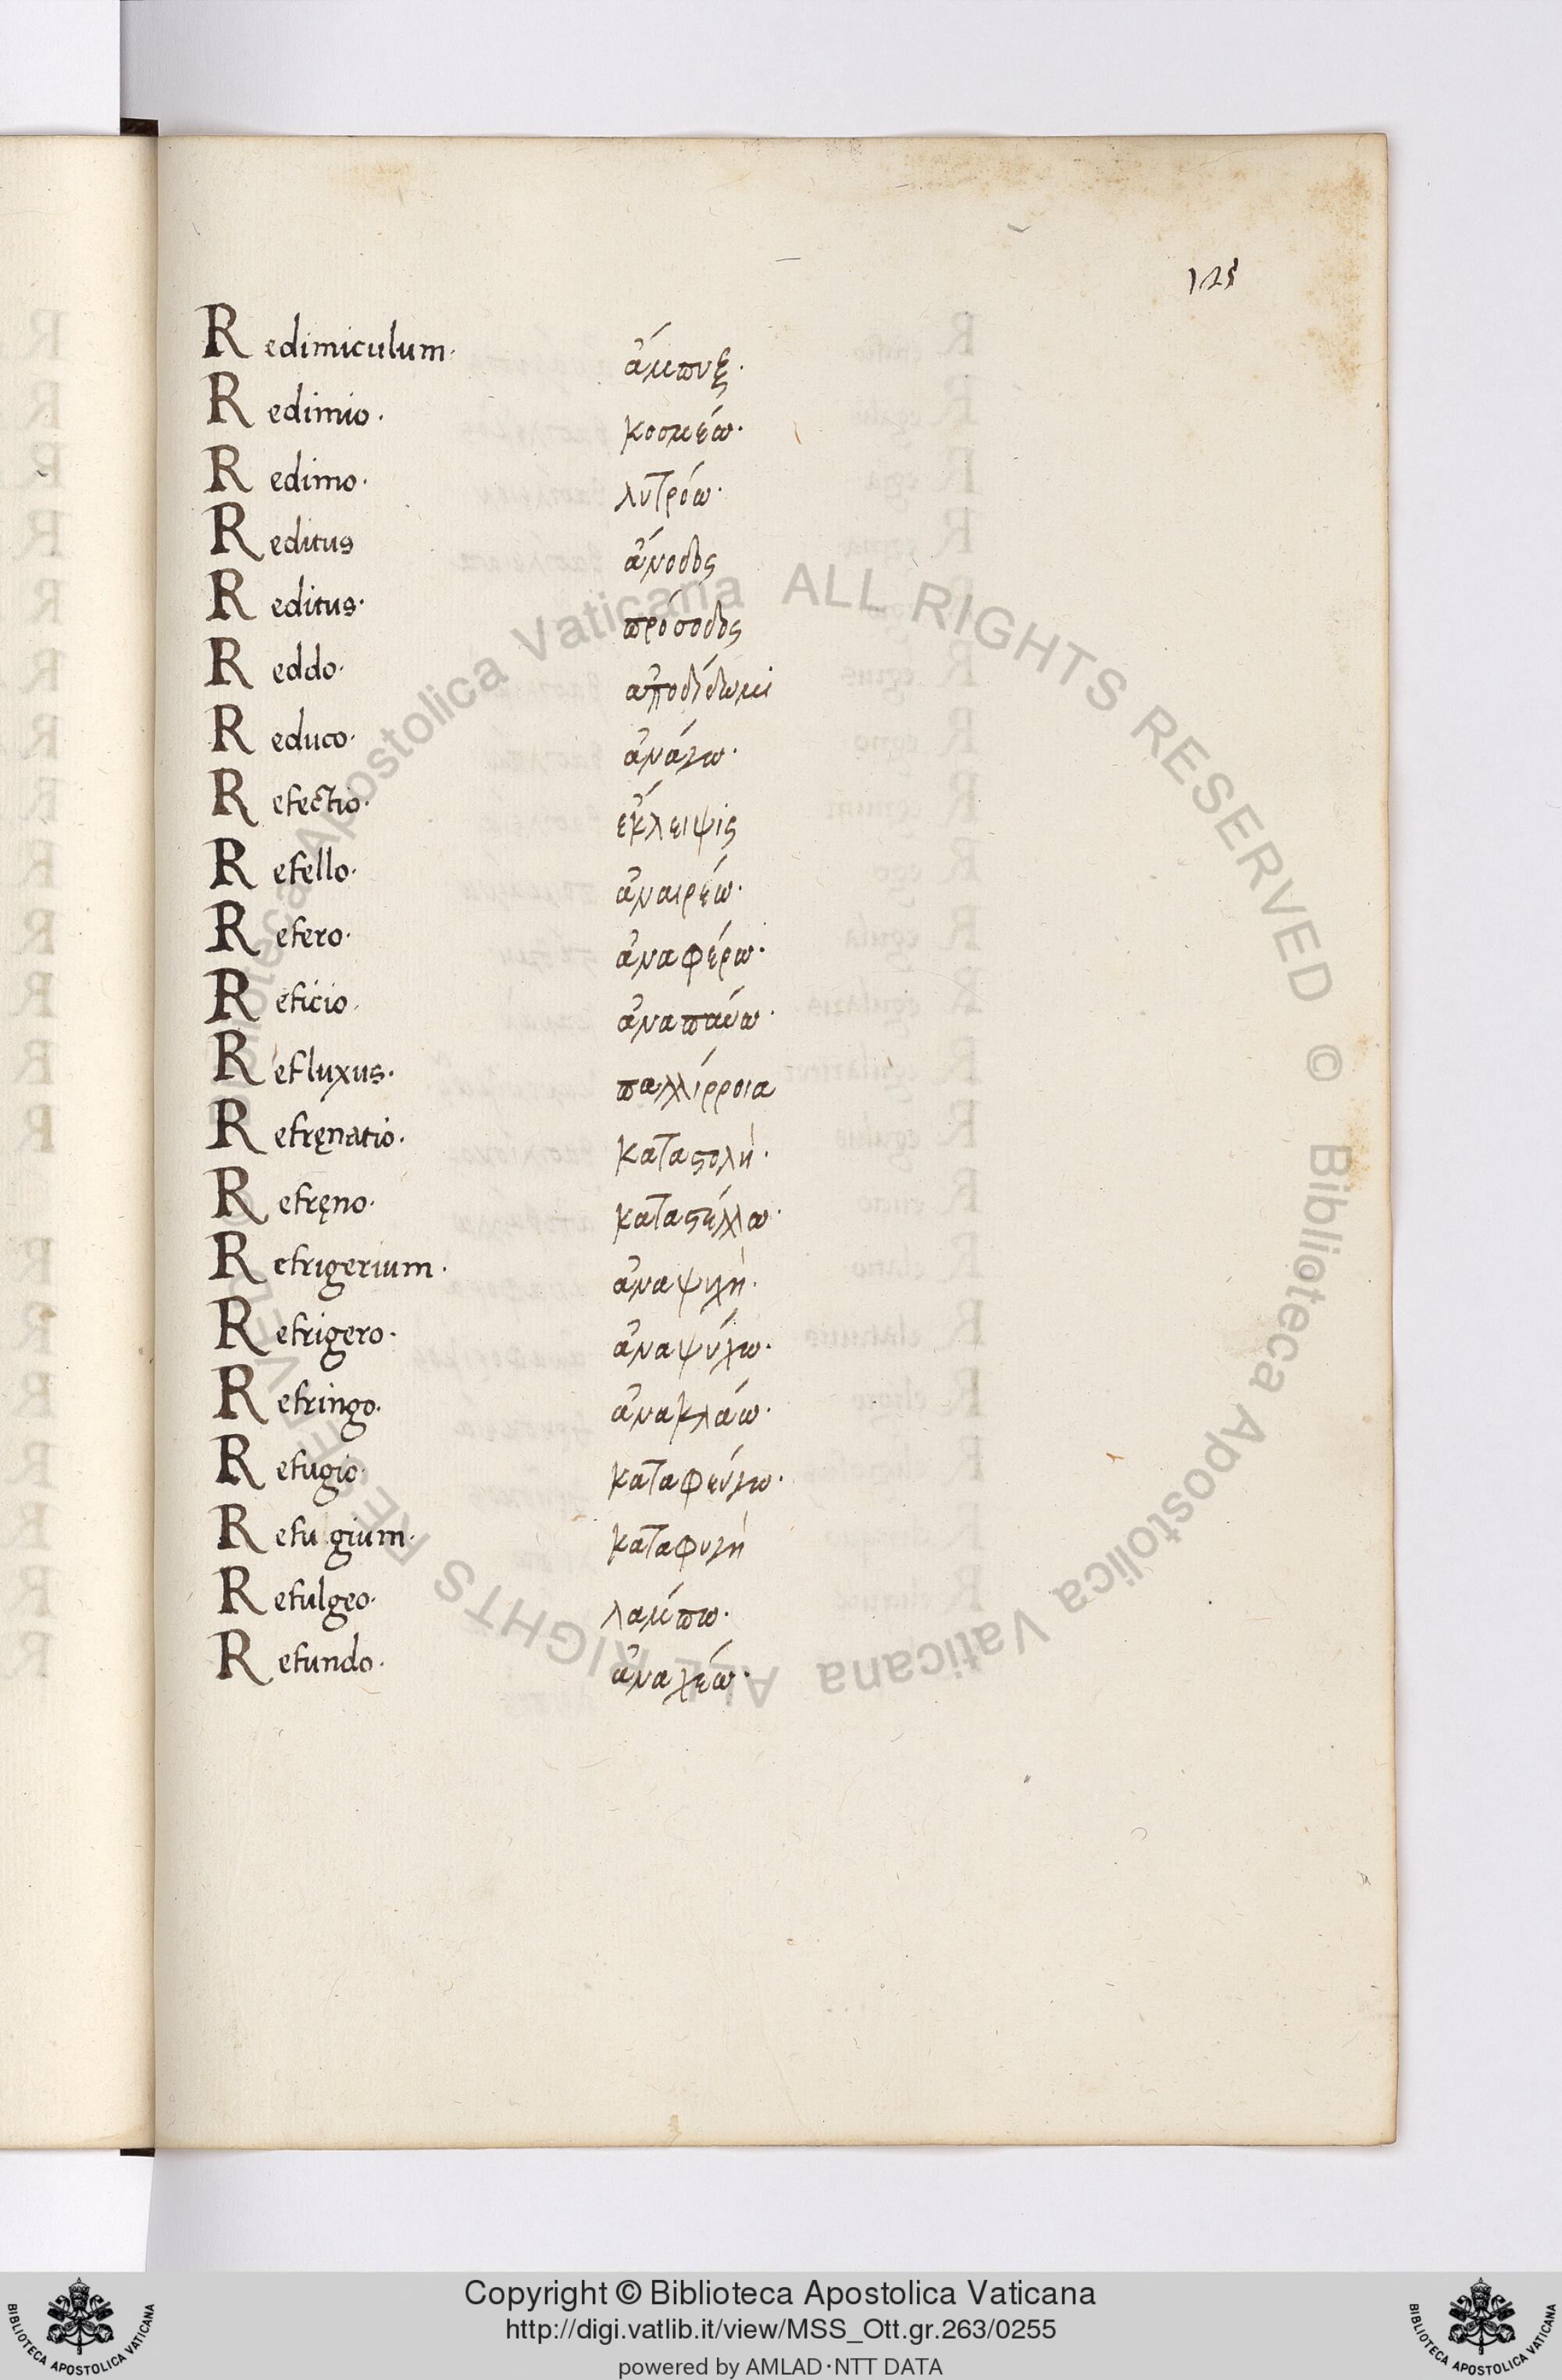 125
Redimiculum· ἄμπυξ·
Redimio· κοσμέω·
Redimo· λυτρόω·
Reditus ἄνοδος
Reditus· πρόσοδος
Reddo· ἀποδίδωμι
Reduco· ἀνάγω·
Refectio· ἔκλειψις
Refello· ἀναιρέω·
Refero· ἀναφέρω·
Reficio· ἀναπαύω·
Refluxus· παλλίρροια
Refręnatio· καταστολή·
Refręno· καταστέλλω·
Refrigerium· ἀναψυχή·
Refrigero· ἀναψύχω·
Refringo· ἀνακλάω·
Refugio· καταφεύγω·
Refugium· καταφυγή
Refulgeo· λάμπω·
Refundo· ἀναχέω·
Biblioteca Apostolica Vaticana ALL RIGHTS RESERVED © Biblioteca Apostolica Vaticana ALL RIGHTS RESERVED ©
Copyright © Biblioteca Apostolica Vaticana
http://digi.vatlib.it/view/MSS_Ott.gr.263/0255
powered by AMLAD·NTT DATA
BIBLIOTECA APOSTOLICA VATICANA
BIBLIOTECA APOSTOLICA VATICANA